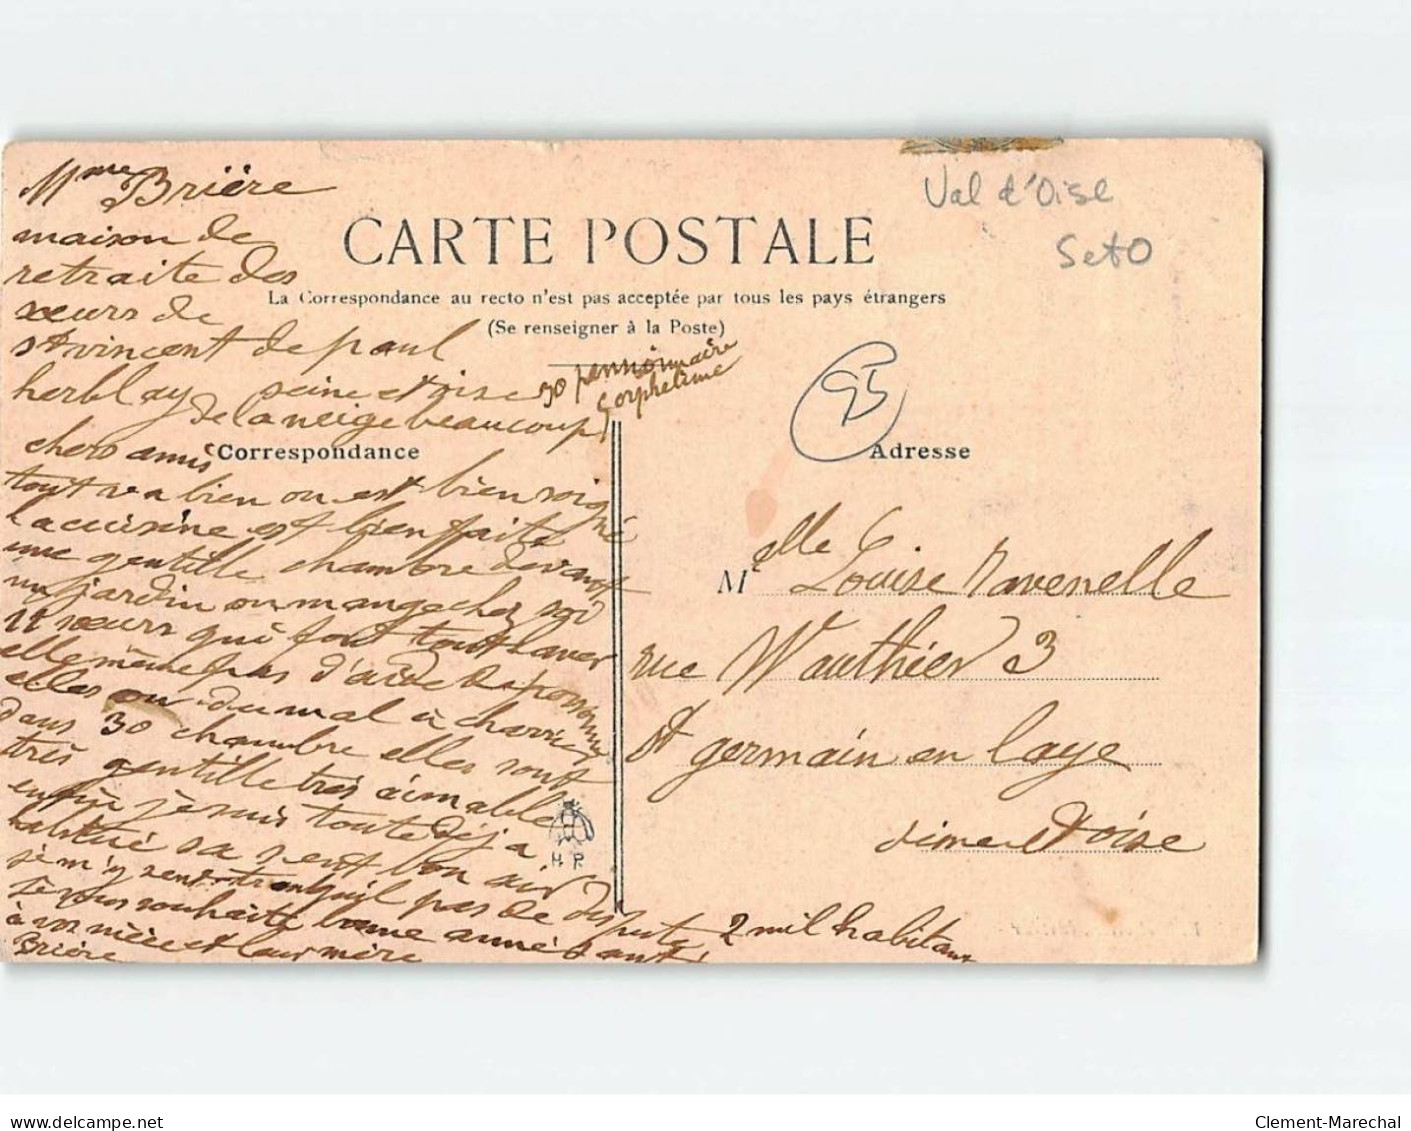 Mme Brière
maison de
retraite des
sœurs de
st vincent de paul
herblay seine et oise
de la neige beaucoup
30 pensionnaire
orpheline
Val d'Oise
Set O
95
CARTE POSTALE
La Correspondance au recto n'est pas acceptée par tous les pays étrangers
(Se renseigner à la Poste)
Correspondance
Adresse
chers amis
tout va bien on est bien soigné
la cuisine est bien faite
une gentille chambre devant
un jardin on mange chez soi
11 sœurs qui font tout laver
elle même pas d'aide de personne
elles on du mal à
dans 30 chambre elles sont
très gentille très aimable
enfin je suis toute déja
habitué sa sent bon air
je m'y sens tranquil pas de dispute
je vous souhaite bonne anné santé
à vos nièce et leur mère
Brière
H. P.
Melle Louise Ravenelle
rue Wauthier 3
st germain en laye
seine et oise
2 mil habitans